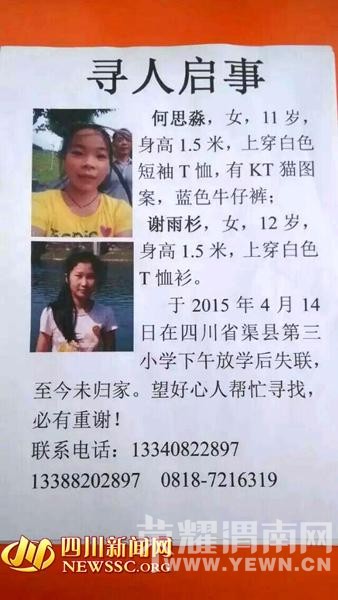 寻人启事
何思淼，女，11岁，
身高1.5米，上穿白色
短袖T恤，有KT猫图
案，蓝色牛仔裤；
谢雨杉，女，12岁，
身高1.5米，上穿白色
T恤衫。
于2015年4月14
日在四川省渠县第三
小学下午放学后失联，
至今未归家。望好心人帮忙寻找，
必有重谢！
联系电话：13340822897
13388202897 0818-7216319
荣耀渭南网
WWW.YEWN.CN
四川新闻网
NEWSSC.ORG